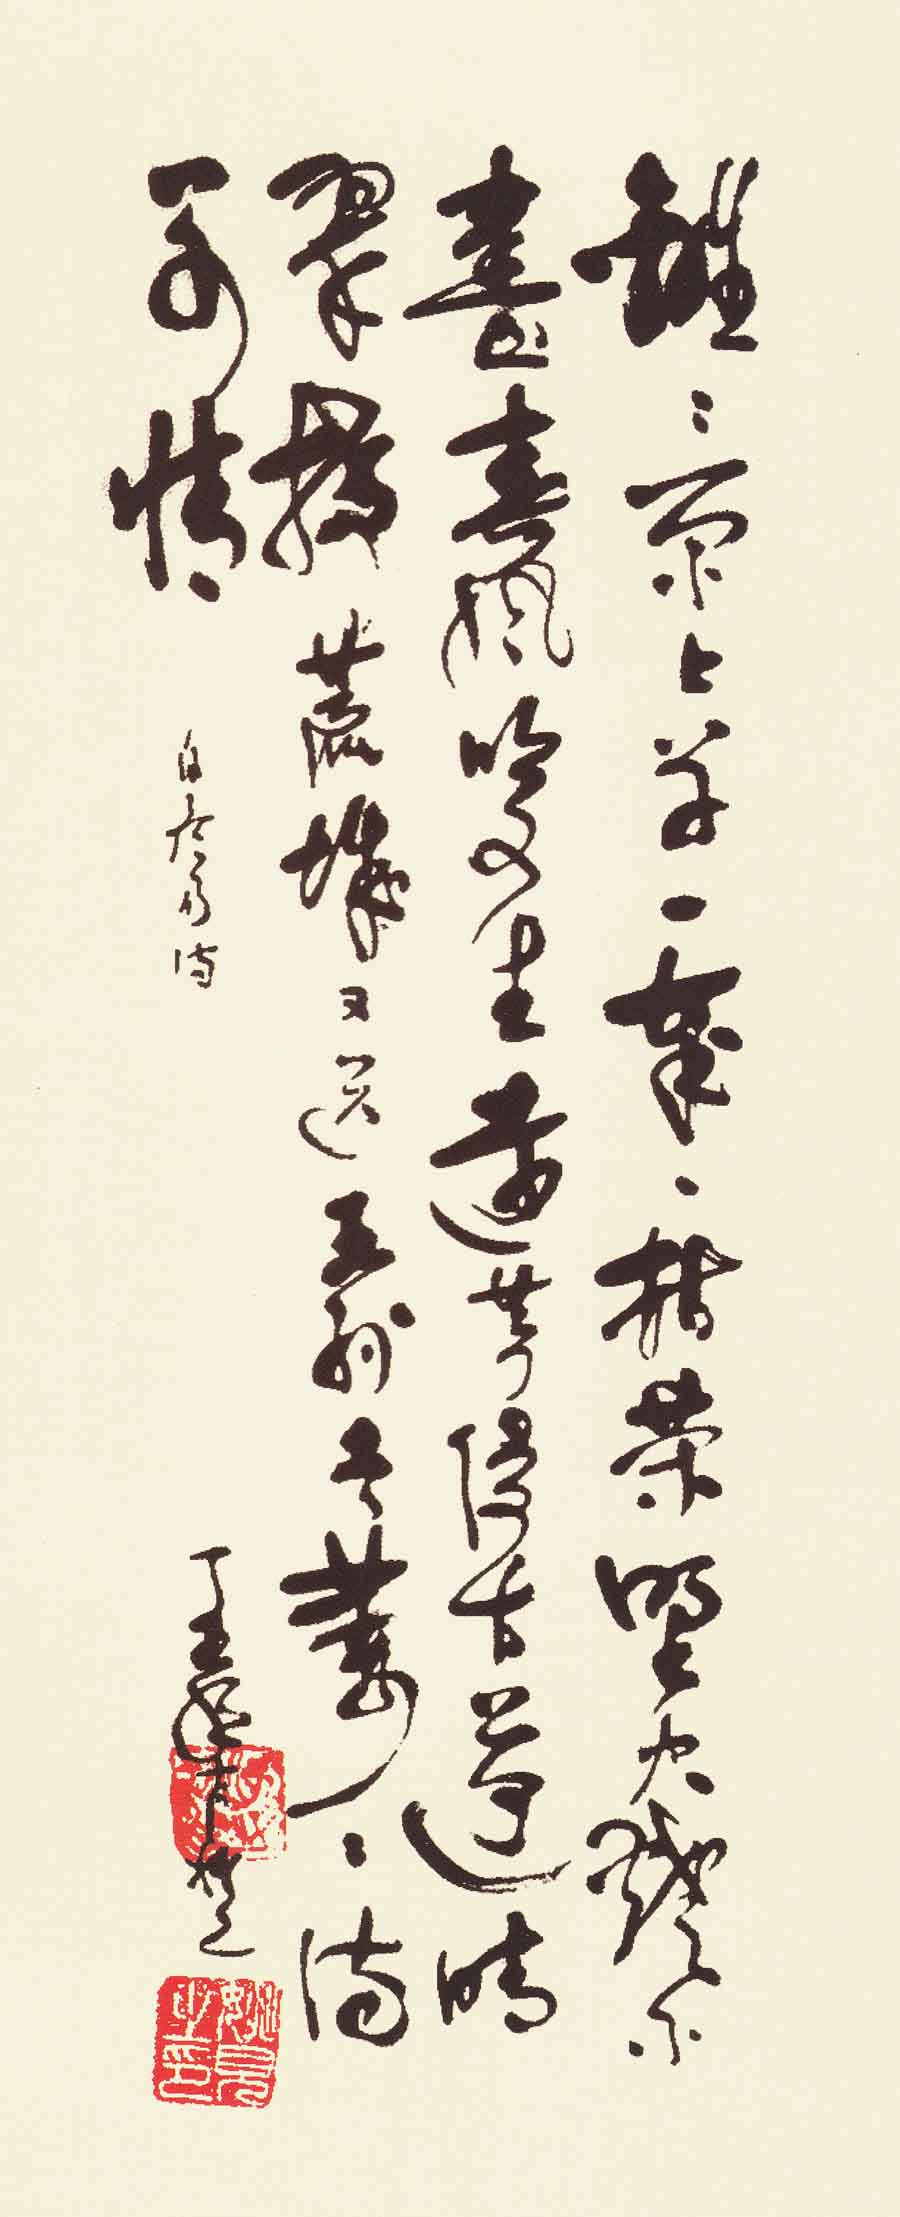 離〻原上草一歲一枯荣野火燒不
盡春風吹又生遠芳侵古道晴
翠接荒城又送王孫去萋〻滿
別情
白居易詩